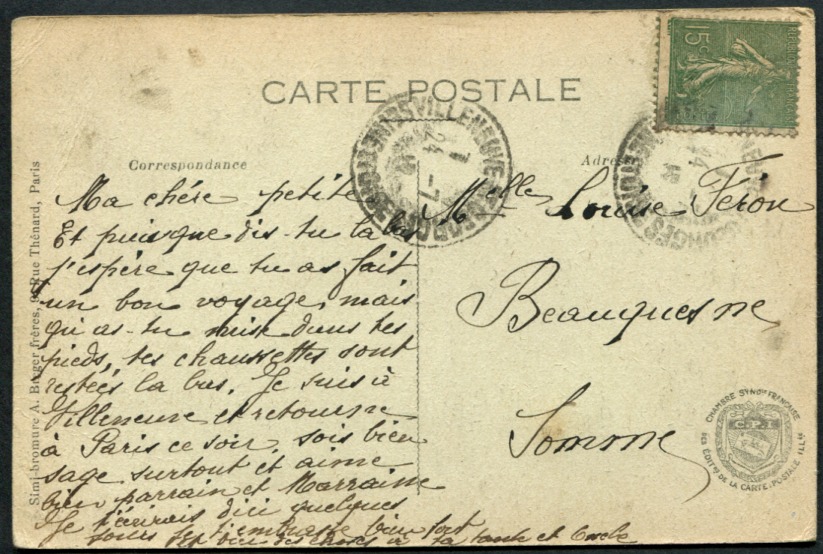 CARTE POSTALE
Correspondance
Adresse
15c
Ma chére petite
Et puisque dis-tu la bas
j'espère que tu as fait
un bon voyage, mais
qu'as-tu mise dans tes
pieds, tes chaussettes sont
restées la bas. Je suis à
Villeneuve et retourne
à Paris ce soir. sois bien
sage surtout et aime
bien parrain et Marraine
Je t'écrirais d'ici quelques
jours je t'embrasse bien fort
bien des choses à ta tante et Oncle
Melle Louise Féron
Beauquesne
Somme
VILLENEUVE
24 -7
Simi-bromure A. Breger frères, 9 Rue Thénard, Paris
CHAMBRE SYNDle FRANÇAISE
C.P.I.
DES EDITrs DE LA CARTE-POSTALE ILLée